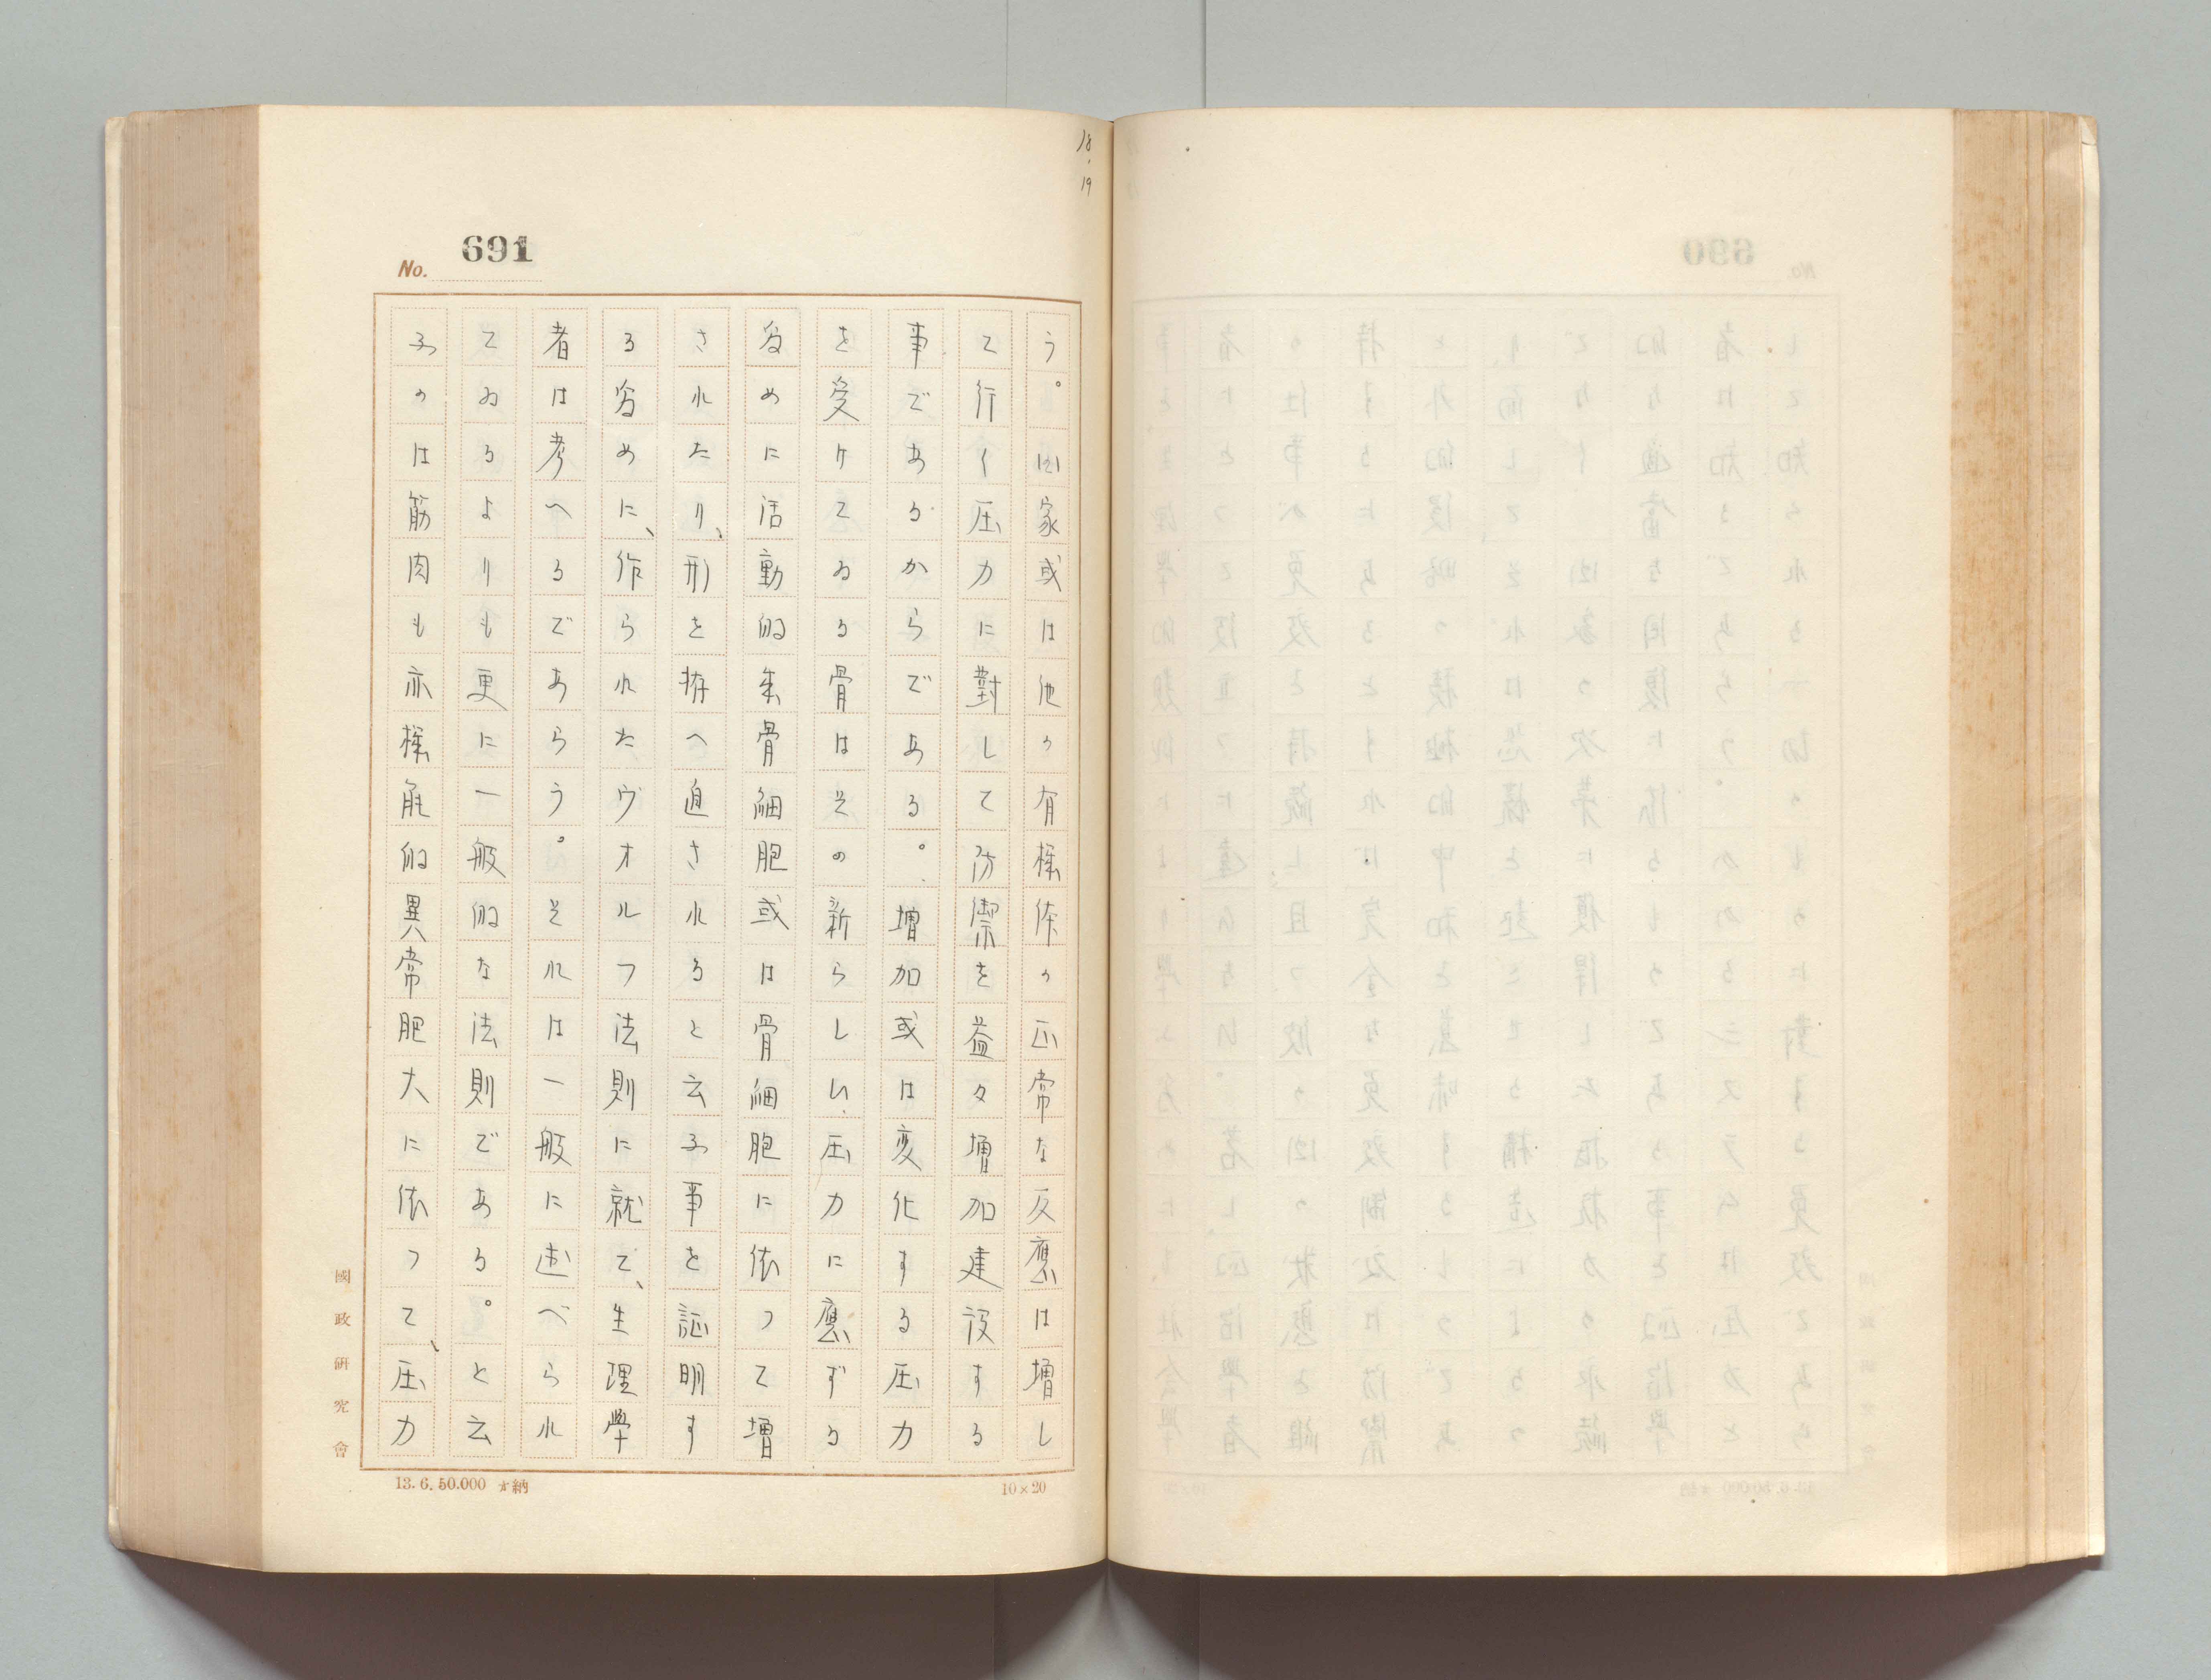 18.19
No. 691
う。国家或は他の有機体の正常な反應は増し
て行く圧力に對して防禦を益々増加建設する
事であるからである。増加或は変化する圧力
を受けてゐる骨はその新らしい圧力に應ずる
為めに活動的骨細胞或は骨細胞に依つて増
されたり、形を拵へ直されると云ふ事を証明す
る為めに、作られたヴオルフ法則に就て、生理學
者は考へるであらう。それは一般に述べられ
てゐるよりも更に一般的な法則である。と云
ふのは筋肉も亦機能的異常肥大に依つて、圧力
國政研究會
10×20
13.6.50.000 納